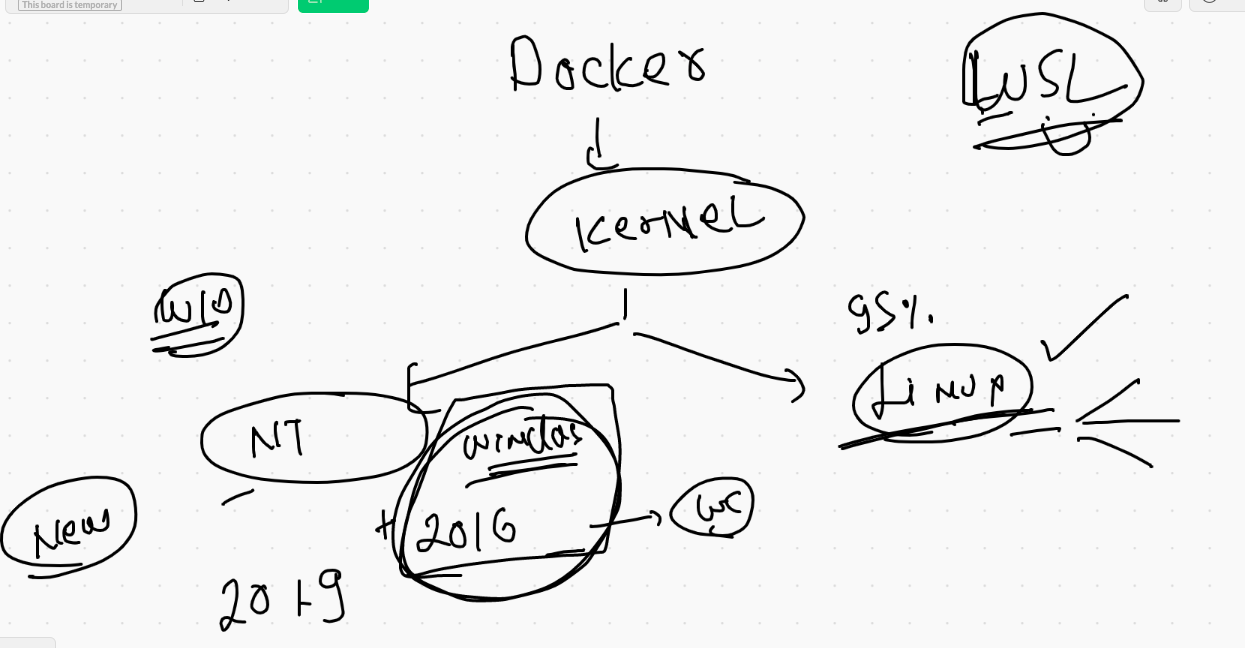 This board is temporary
Docker
WSL
Kernel
W10
95%.
NT
Windos
Linux
New
+ 2016
WC
2019